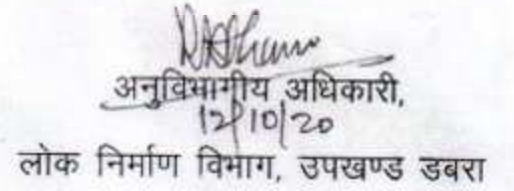 अनुविभागीय अधिकारी,
12/10/20
लोक निर्माण विभाग, उपखण्ड डबरा